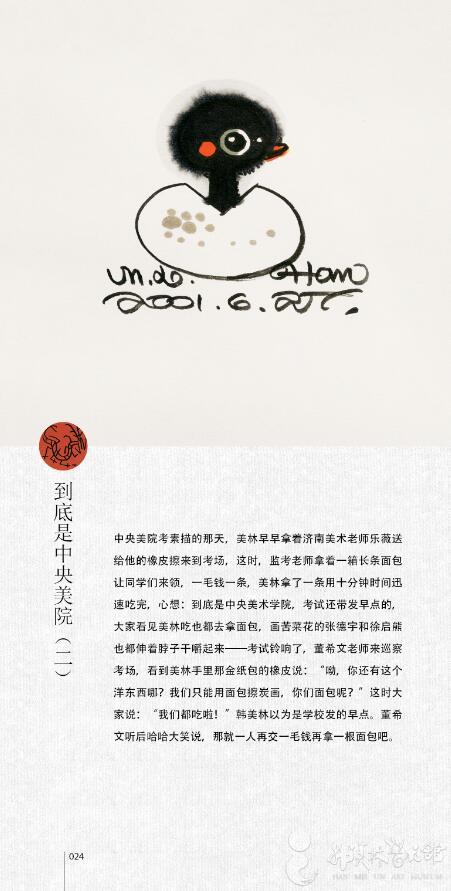 2001.6.
到底是中央美院（二）
中央美院考素描的那天，美林早早拿着济南美术老师乐薇送
给他的橡皮擦来到考场，这时，监考老师拿着一箱长条面包
让同学们来领，一毛钱一条，美林拿了一条用十分钟时间迅
速吃完，心想：到底是中央美术学院，考试还带发早点的，
大家看见美林吃也都去拿面包，画苦菜花的张德宇和徐启熊
也都伸着脖子干嚼起来——考试铃响了，董希文老师来巡察
考场，看到美林手里那金纸包的橡皮说：“呦，你还有这个
洋东西哪？我们只能用面包擦炭画，你们面包呢？”这时大
家说：“我们都吃啦！”韩美林以为是学校发的早点。董希
文听后哈哈大笑说，那就一人再交一毛钱再拿一根面包吧。
024
韩美林艺术馆
HAN MEI LIN ART MUSEUM